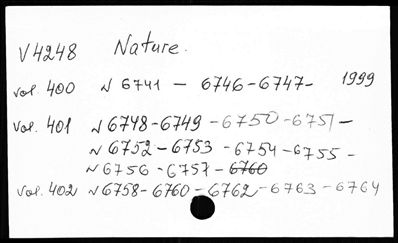 V4248 Nature.
vol. 400 N 6741 – 6746-6747- 1999
vol. 401 N 6748-6749-6750-6751-
N 6752-6753-6754-6755-
N 6756-6757-6760
vol. 402 N 6758-6760-6762-6763-6764